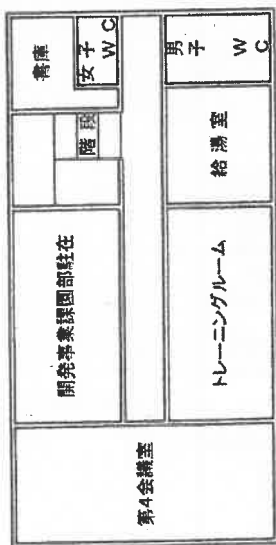 書庫
女子
WC
男子
WC
階段
給湯室
開発事業課園部駐在
トレーニングルーム
第4会議室